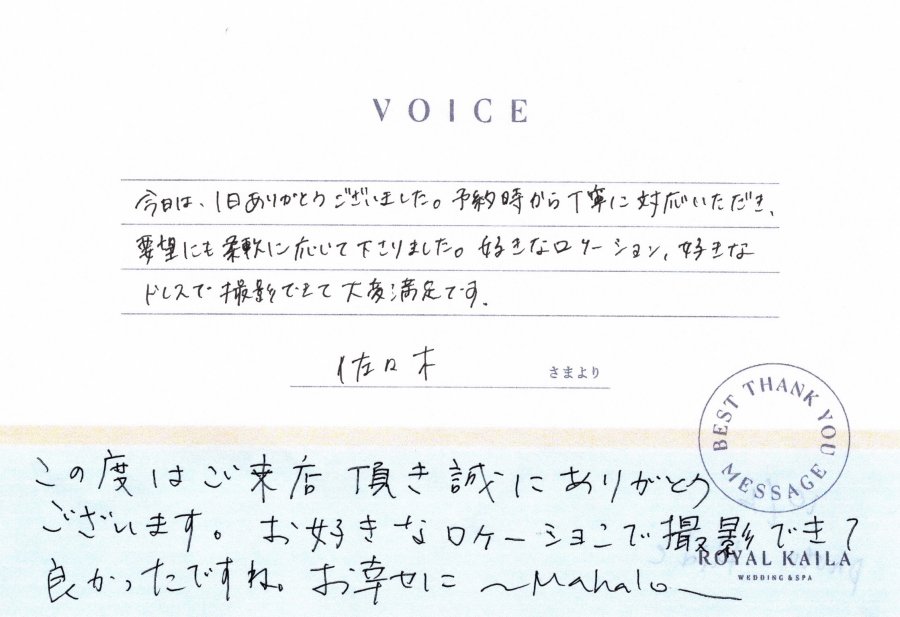 VOICE
今日は、1日ありがとうございました。予約時から丁寧に対応いただき、
要望にも柔軟に応じて下さりました。好きなロケーション、好きな
ドレスで撮影できて大変満足です。
佐々木 さまより
BEST THANK YOU
MESSAGE
この度はご来店頂き誠にありがとう
ございます。お好きなロケーションで撮影できて
ROYAL KAILA
WEDDING & SPA
良かったですね。お幸せに 〜Mahalo〜